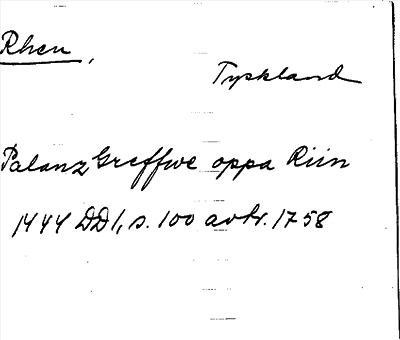 Rhen,
Tyskland
Palanz Greffwe oppa Riin
1444 DD1, s. 100 avkr. 1758